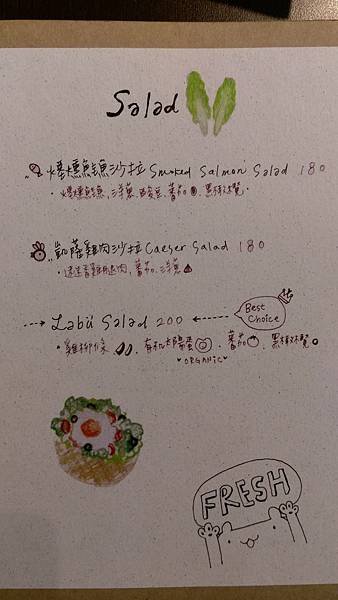 Salad
煙燻鮭魚沙拉 Smoked Salmon Salad 180
·煙燻鮭魚,洋蔥,酸豆,蕃茄,黑橄欖·
凱薩雞肉沙拉 Caeser Salad 180
·迷迭香雞腿肉,蕃茄,洋蔥
Labü Salad 200
Best Choice
·雞柳條、有機太陽蛋、蕃茄、黑橄欖
ORGANIC
FRESH